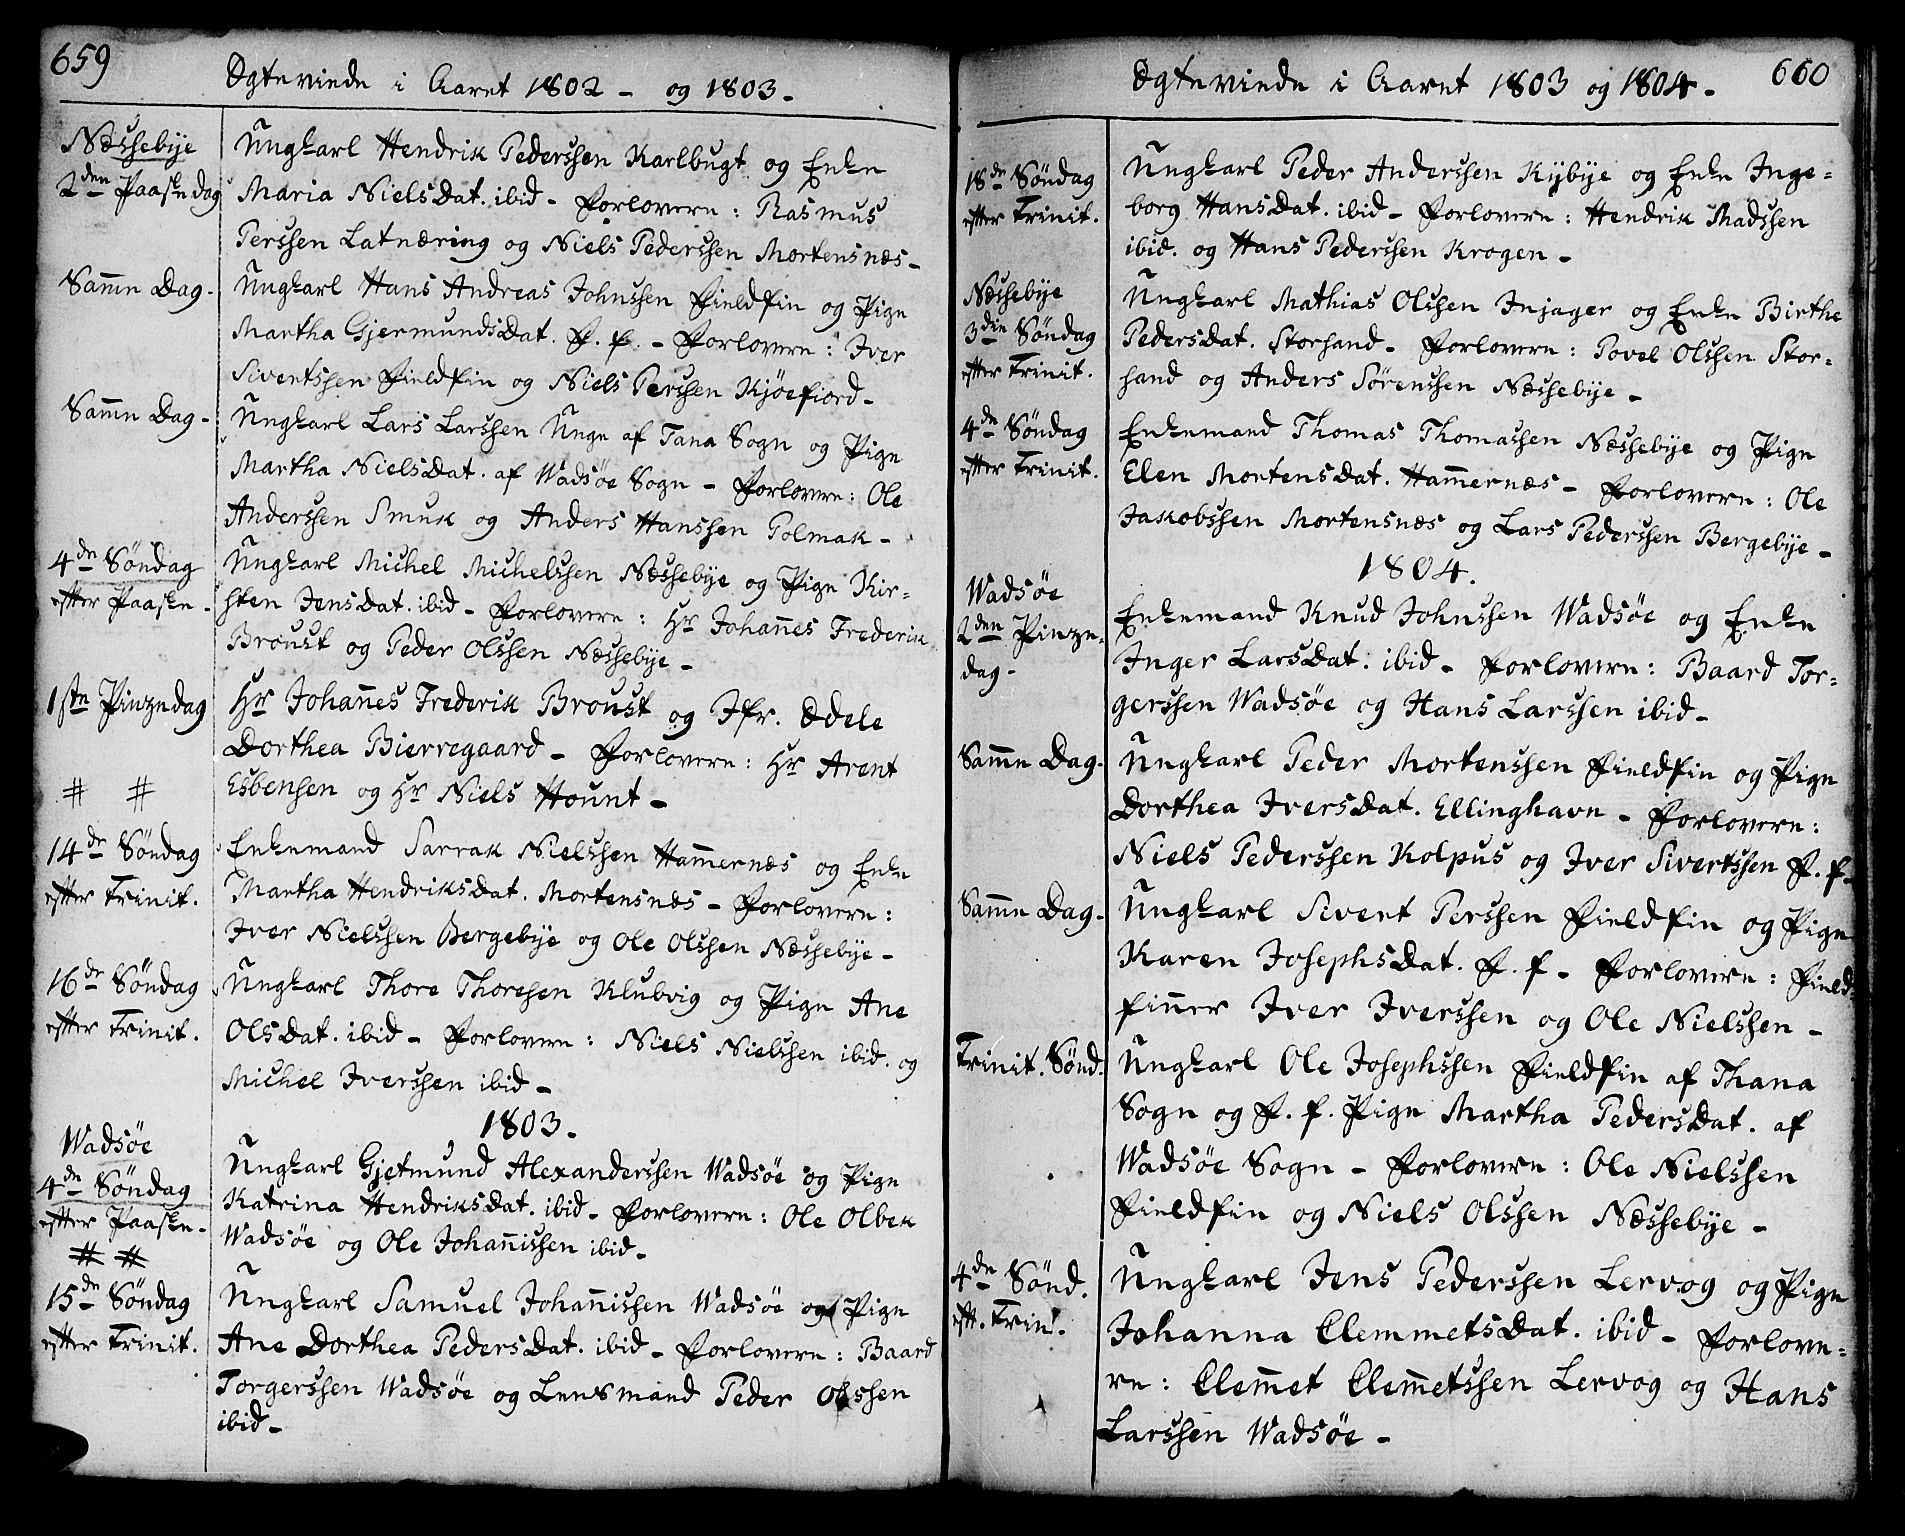 659
Ægteviede i Aaret 1802 - og 1803 -
Næssebye
2den Paaske dag
Ungkarl Hendrik Pederssen Karlbugt og Enke
Maria NielsDat. ibid - Forlovere: Rasmus
Perssen Latnæring og Niels Pederssen Mortensnæs -
Samme Dag -
Ungkarl Hans Andreas Johnssen Fieldfin og Pige
Martha GjermundsDat. F. f. - Forlovere: Iver
Sivertssen Fieldfin og Niels Perssen Kjøefiord -
Samme Dag -
Ungkarl Lars Larssen Unge af Tana Sogn og Pige
Martha NielsDat. af Wadsøe Sogn - Forlovere: Ole
Anderssen Smuk og Anders Hanssen Polmak -
4de Søndag
efter Paaske -
Ungkarl Michel Michelssen Næssebye og Pige Kir=
sten JensDat. ibid - Forlovere: Hr Johannes Frederik
Broust og Peder Olssen Næssebye -
1ste Pinzedag
# #
Hr Johannes Frederik Broust og Jfr. Edele
Dorthea Bierregaard - Forlovere: Hr Arent
Esbensen og Hr Niels Hount -
14de Søndag
efter Trinit.
Enkemand Sarrak Nielssen Hammernæs og Enke
Martha HendriksDat. Mortensnæs - Forlovere:
Iver Nielssen Bergebye og Ole Olssen Næssebye -
16de Søndag
efter Trinit.
Ungkarl Thore Thoresen Klubvig og Pige Ane
OlsDat. ibid - Forlovere: Niels Nielssen ibid. og
Michel Iverssen ibid -
1803.
Wadsøe
4de Søndag
efter Paaske -
# #
Ungkarl Gjetmund Alexanderssen Wadsøe og Pige
Katrina HendriksDat. ibid - Forlovere: Ole Olbek
Wadsøe og Ole Johannissen ibid -
15de Søndag
efter Trinit.
Ungkarl Samuel Johannissen Wadsøe og Pige
Ane Dorthea PedersDat. ibid - Forlovere: Baard
Torgerssen Wadsøe og Lensmand Peder Olssen
ibid -
660
Ægteviede i Aaret 1803 og 1804 -
18de Søndag
efter Trinit.
Ungkarl Peder Anderssen Kybye og Enke Inge=
borg HansDat. ibid - Forlovere: Hendrik Madssen
ibid. og Hans Pederssen Krogen -
Næssebye
3die Søndag
efter Trinit.
Ungkarl Mathias Olssen Injager og Enke Birthe
PedersDat. Storsand - Forlovere: Povel Olssen Stor=
sand og Anders Sørenssen Næssebye -
4de Søndag
efter Trinit.
Enkemand Thomas Thomassen Næssebye og Pige
Elen MortensDat. Hammernæs - Forlovere: Ole
Jakobssen Mortensnæs og Lars Pederssen Bergebye -
1804.
Wadsøe
2den Pinze=
dag -
Enkemand Knud Johnssen Wadsøe og Enke
Inger LarsDat. ibid - Forlovere: Baard Tor=
gerssen Wadsøe og Hans Larssen ibid -
Samme Dag -
Ungkarl Peder Mortenssen Fieldfin og Pige
Dorthea IversDat. Ellinghavn - Forlovere:
Niels Pederssen Kolpus og Iver Sivertssen F. f -
Samme Dag -
Ungkarl Sivert Perssen Fieldfin og Pige
Karen JosephsDat. F. f - Forlovere: Field=
finner Iver Iverssen og Ole Nielssen -
Trinit. Sønd.
Ungkarl Ole Josephssen Fieldfin af Thana
Sogn og F. f. Pige Martha PedersDat. af
Wadsøe Sogn - Forlovere: Ole Nielssen
Fieldfin og Niels Olssen Næssebye -
4de Sønd.
eft. Trin.
Ungkarl Jens Pederssen Lervog og Pige
Johanna ClemmetsDat. ibid - Forlove=
re: Clemmet Clemmetssen Lervog og Hans
Larssen Wadsøe -